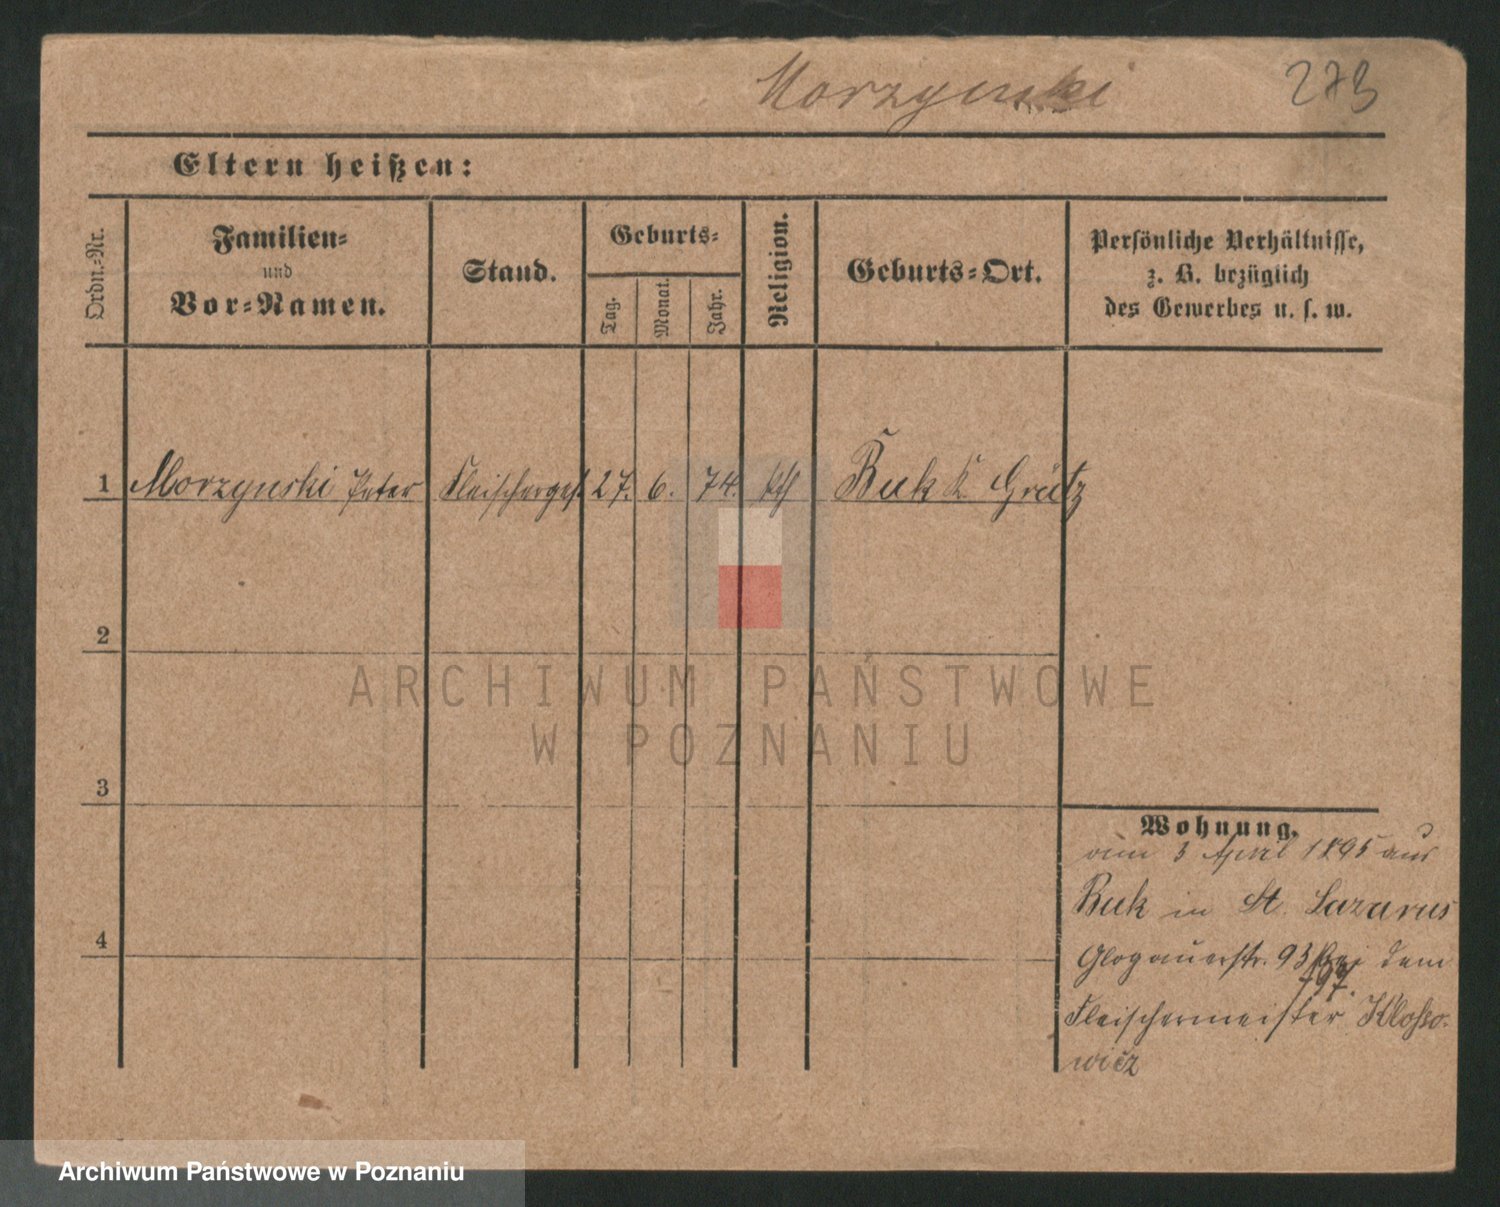 Morzynski 273
Eltern heißen:
Ordn.-Nr.
Familien-
und
Vor-Namen.
Stand.
Geburts-
Tag.
Monat.
Jahr.
Religion.
Geburts-Ort.
Persönliche Verhältnisse,
z. B. bezüglich
des Gewerbes u. s. w.
1 Morzynski Peter Fleischerges. 27. 6. 74. kth Buk K. Grätz
2
3
4
Wohnung.
3 April 1895 aus
Buk in St. Lazarus
Glogauerstr. 93 bei dem
797.
Fleischermeister Klosso-
wicz
ARCHIWUM PAŃSTWOWE
W POZNANIU
Archiwum Państwowe w Poznaniu